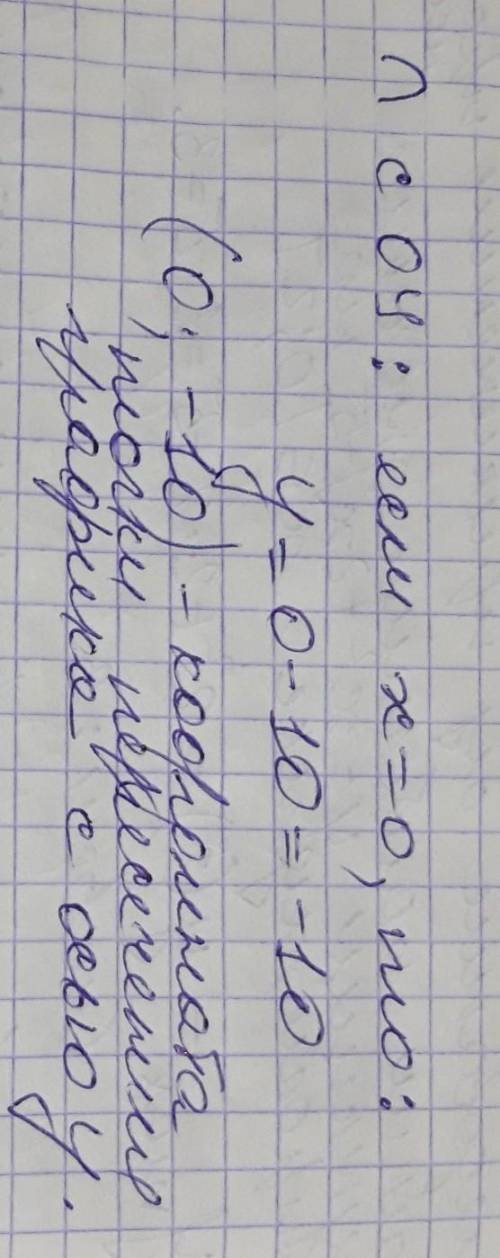 ∩ с OY: если x=0, то:
y=0-10=-10
(0; -10) - координата
точки пересечения
графика с осью y.